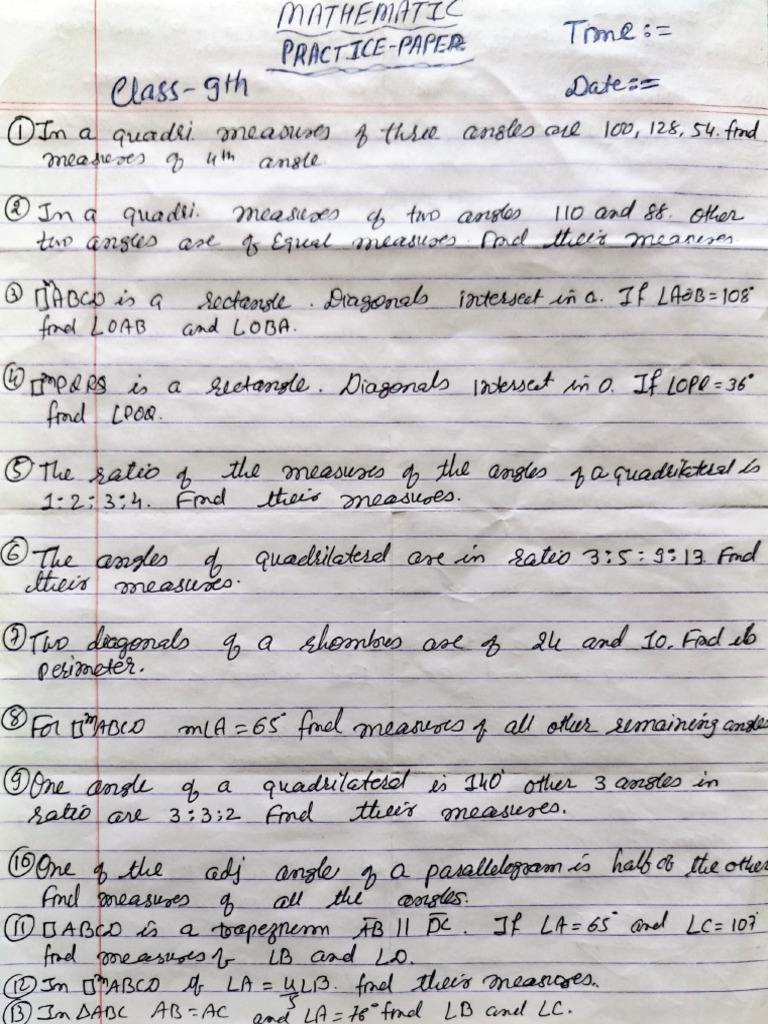 MATHEMATIC
PRACTICE-PAPER
Time:=
Class-9th
Date:=
① In a quadri. measures of three angles are 100, 128, 54. find
measures of 4th angle.
② In a quadri. measures of two angles 110 and 88. other
two angles are of Equal measures. find their measures.
③ □ᵐABCD is a rectangle. Diagonals intersect in o. If ∠AOB=108°
find ∠OAB and ∠OBA.
④ □ᵐPQRS is a rectangle. Diagonals intersect in O. If ∠OPQ=36°
find ∠POQ.
⑤ The ratio of the measures of the angles of a quadrilateral is
1:2:3:4. Find their measures.
⑥ The angles of quadrilateral are in ratio 3:5:9:13. Find
their measures.
⑦ Two diagonals of a rhombus are of 24 and 10. Find its
perimeter.
⑧ For □ᵐABCD m∠A=65° find measures of all other remaining angles
⑨ One angle of a quadrilateral is 140° other 3 angles in
ratio are 3:3:2 Find their measures.
⑩ One of the adj angle of a parallelogram is half of the other
Find measures of all the angles.
⑪ □ABCD is a trapeznem AB || DC. If ∠A=65° and ∠C=107°
find measures of ∠B and ∠D.
⑫ In □ᵐABCD if ∠A = 4/5∠B. find their measures.
⑬ In ΔABC AB=AC and ∠A=76° find ∠B and ∠C.